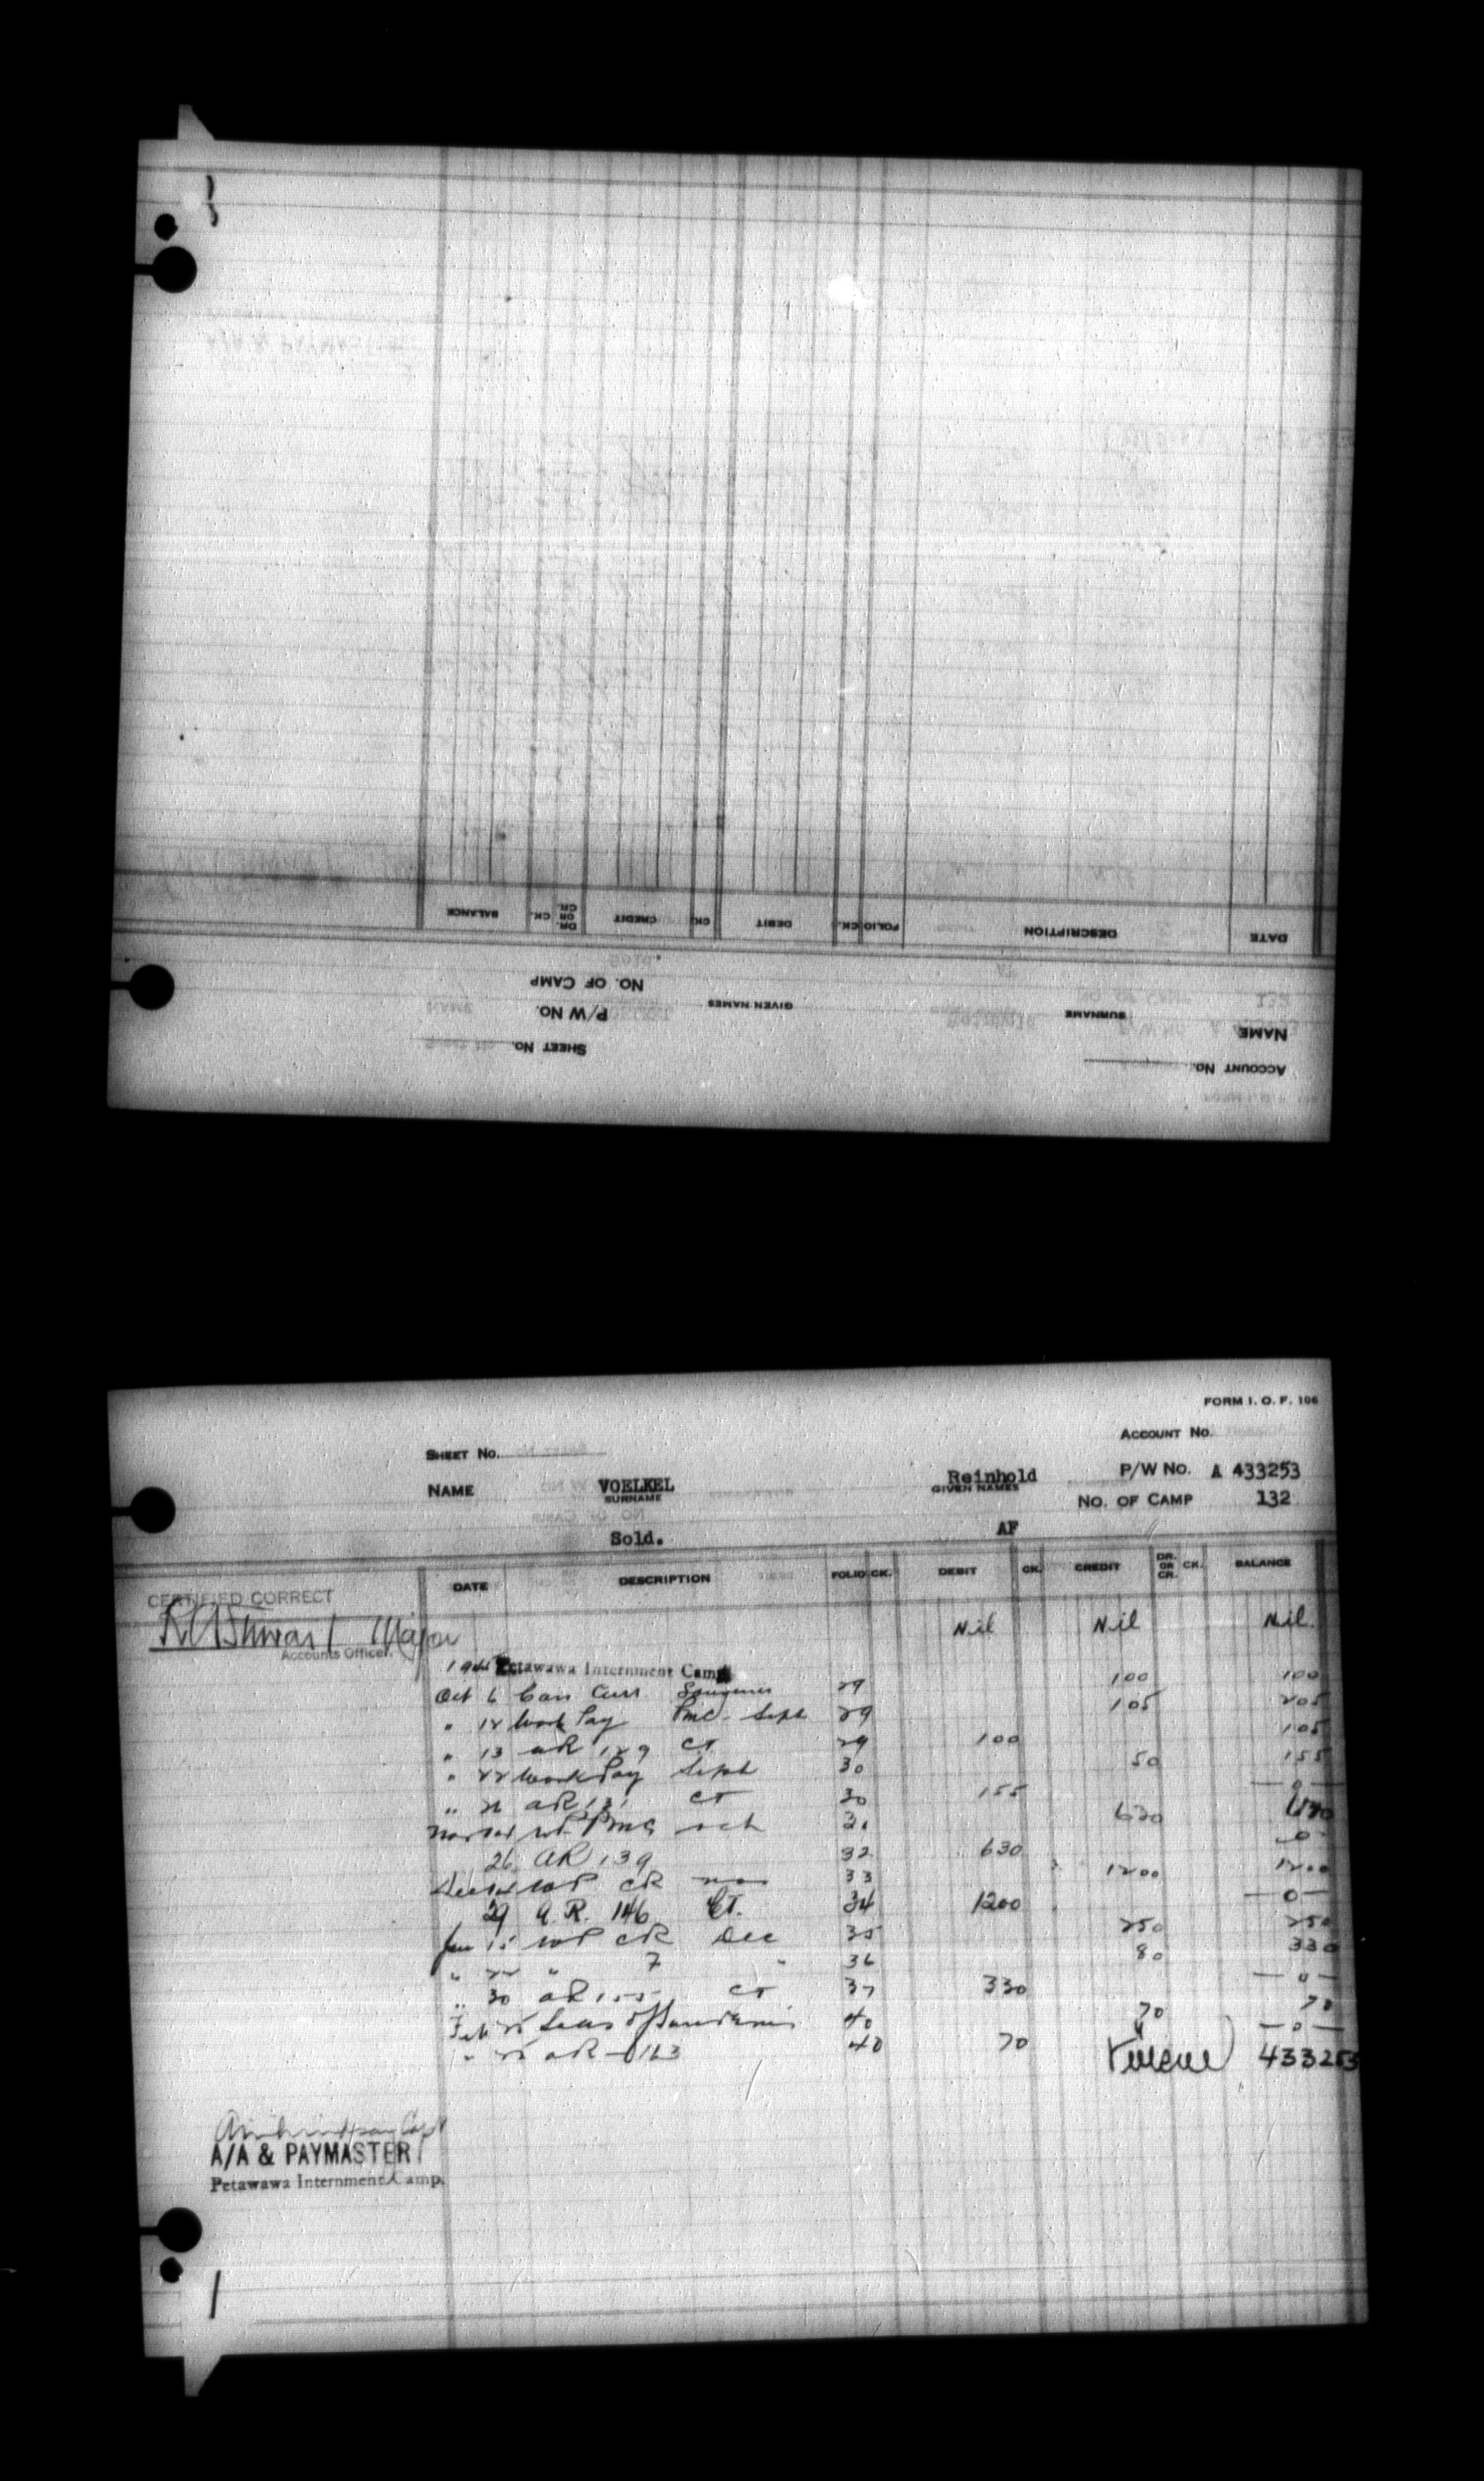 DATE DESCRIPTION FOLIO CK. DEBIT CK. CREDIT DR. OR CR. CK. BALANCE
NO. OF CAMP
NAME SURNAME GIVEN NAMES P/W NO.
ACCOUNT NO. SHEET NO.
FORM I. O. F. 106
SHEET NO. ACCOUNT NO.
NAME VOELKEL Reinhold P/W NO. A 433253
SURNAME GIVEN NAMES NO. OF CAMP 132
Sold. AF
DATE DESCRIPTION FOLIO CK. DEBIT CK. CREDIT DR. OR CR. CK. BALANCE
CERTIFIED CORRECT
Major Nil Nil Nil
Accounts Officer.
Petawawa Internment Camp
Oct 6 Can Curr 29 100 100
" 12 Work Pay PMC - Sept 29 105 205
" 13 AR 129 CT 29 100 105
" 22 Work Pay Sept 30 50 155
" AR 131 CT 30 155 — 0 —
WP PMC Oct 31 630
26 AR 139 32 630 — 0 —
WP CR Nov 33 1200 1200
29 A.R. 146 CT. 34 1200 — 0 —
Jan 15 WP CR Dec 35 250 250
" 22 " 7 " 36 80 330
" 30 AR 155 CT 37 330 — 0 —
Feb 40 70 70
" AR 163 40 70 — 0 —
433253
A/A & PAYMASTER
Petawawa Internment Camp.